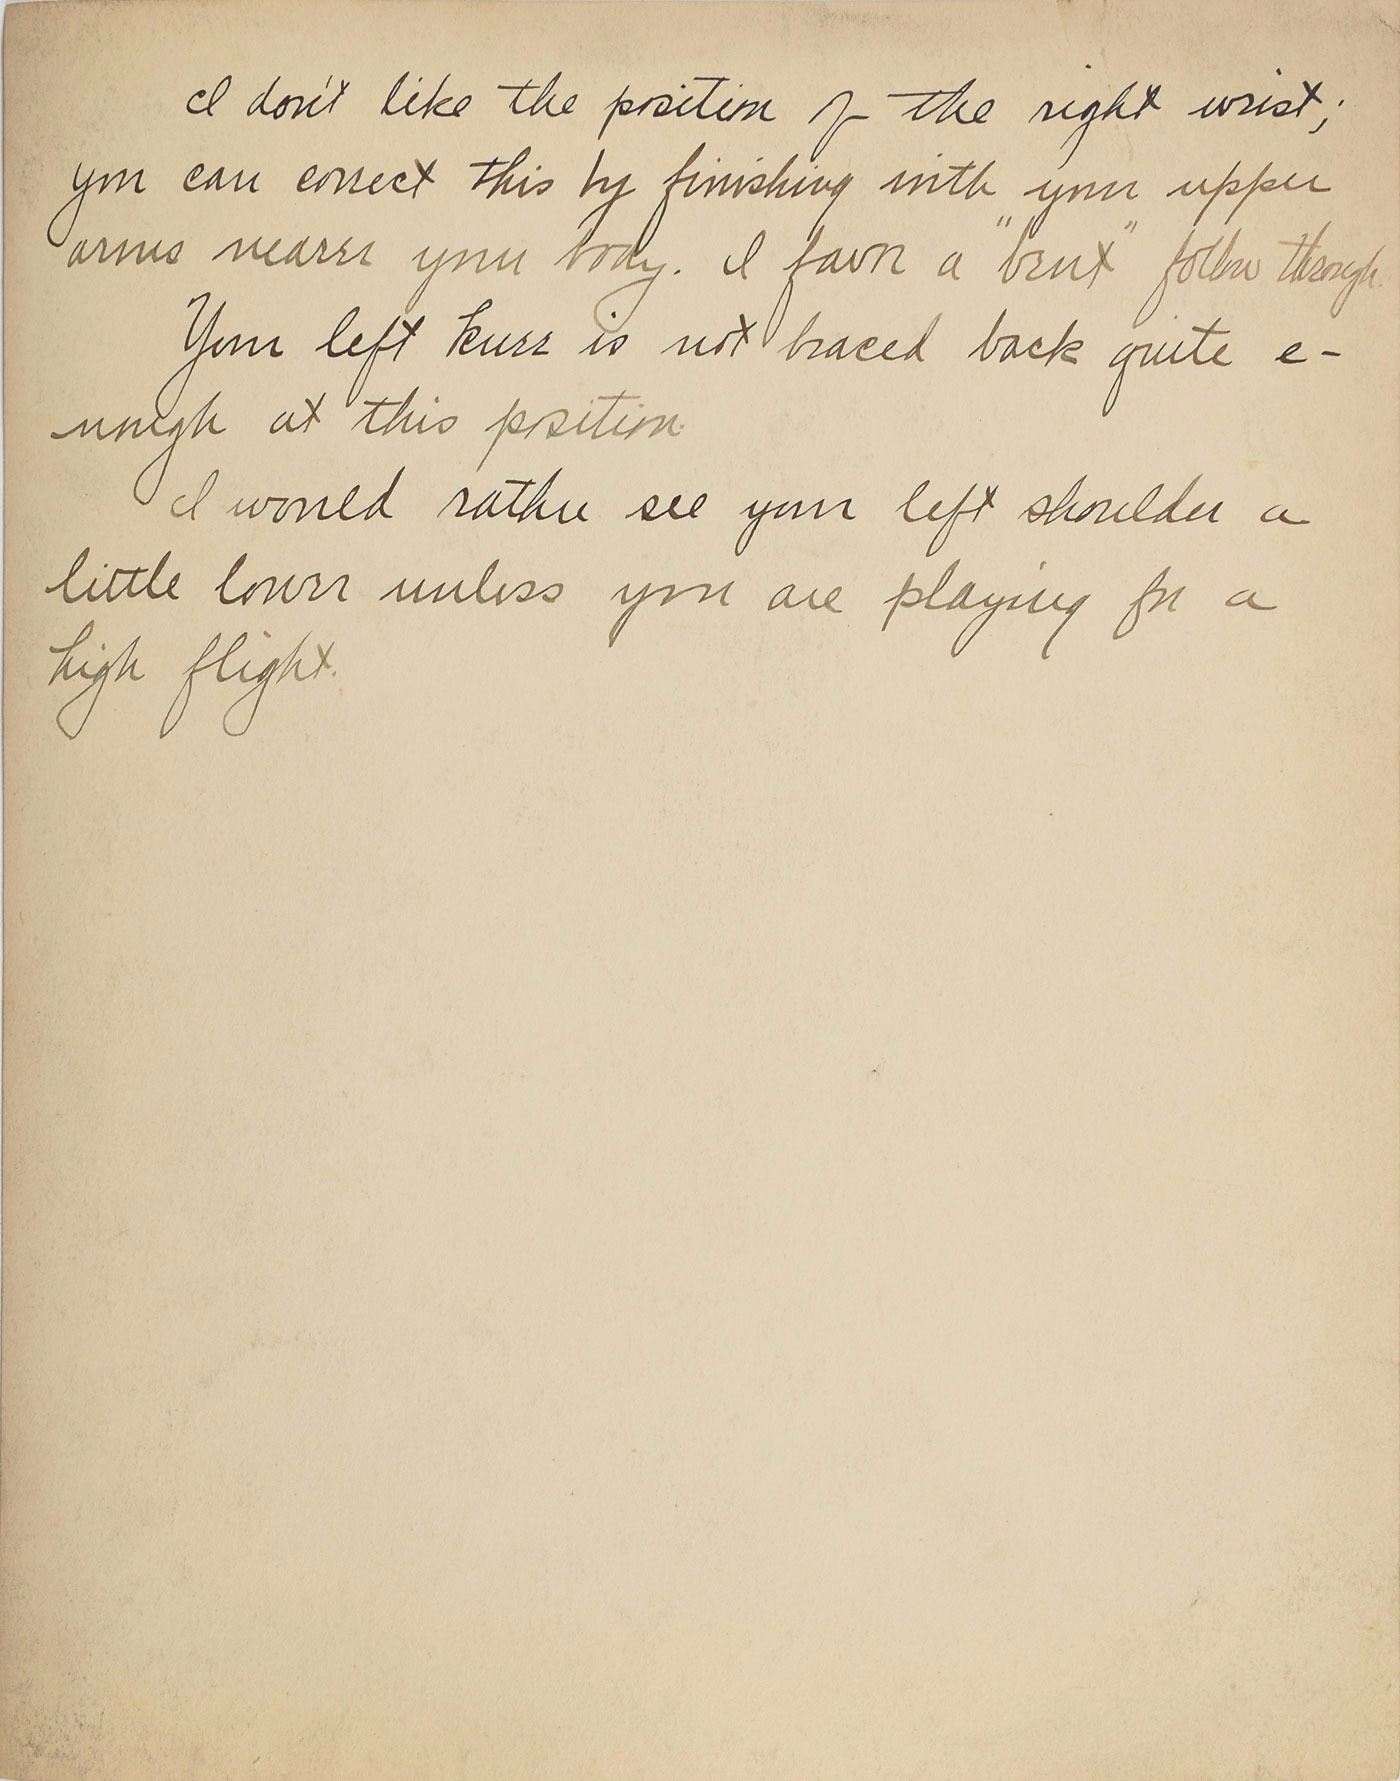 I don't like the position of the right wrist;
you can correct this by finishing with your upper
arms nearer your body. I favor a "bent" follow through.
Your left knee is not braced back quite e-
nough at this position.
I would rather see your left shoulder a
little lower unless you are playing for a
high flight.